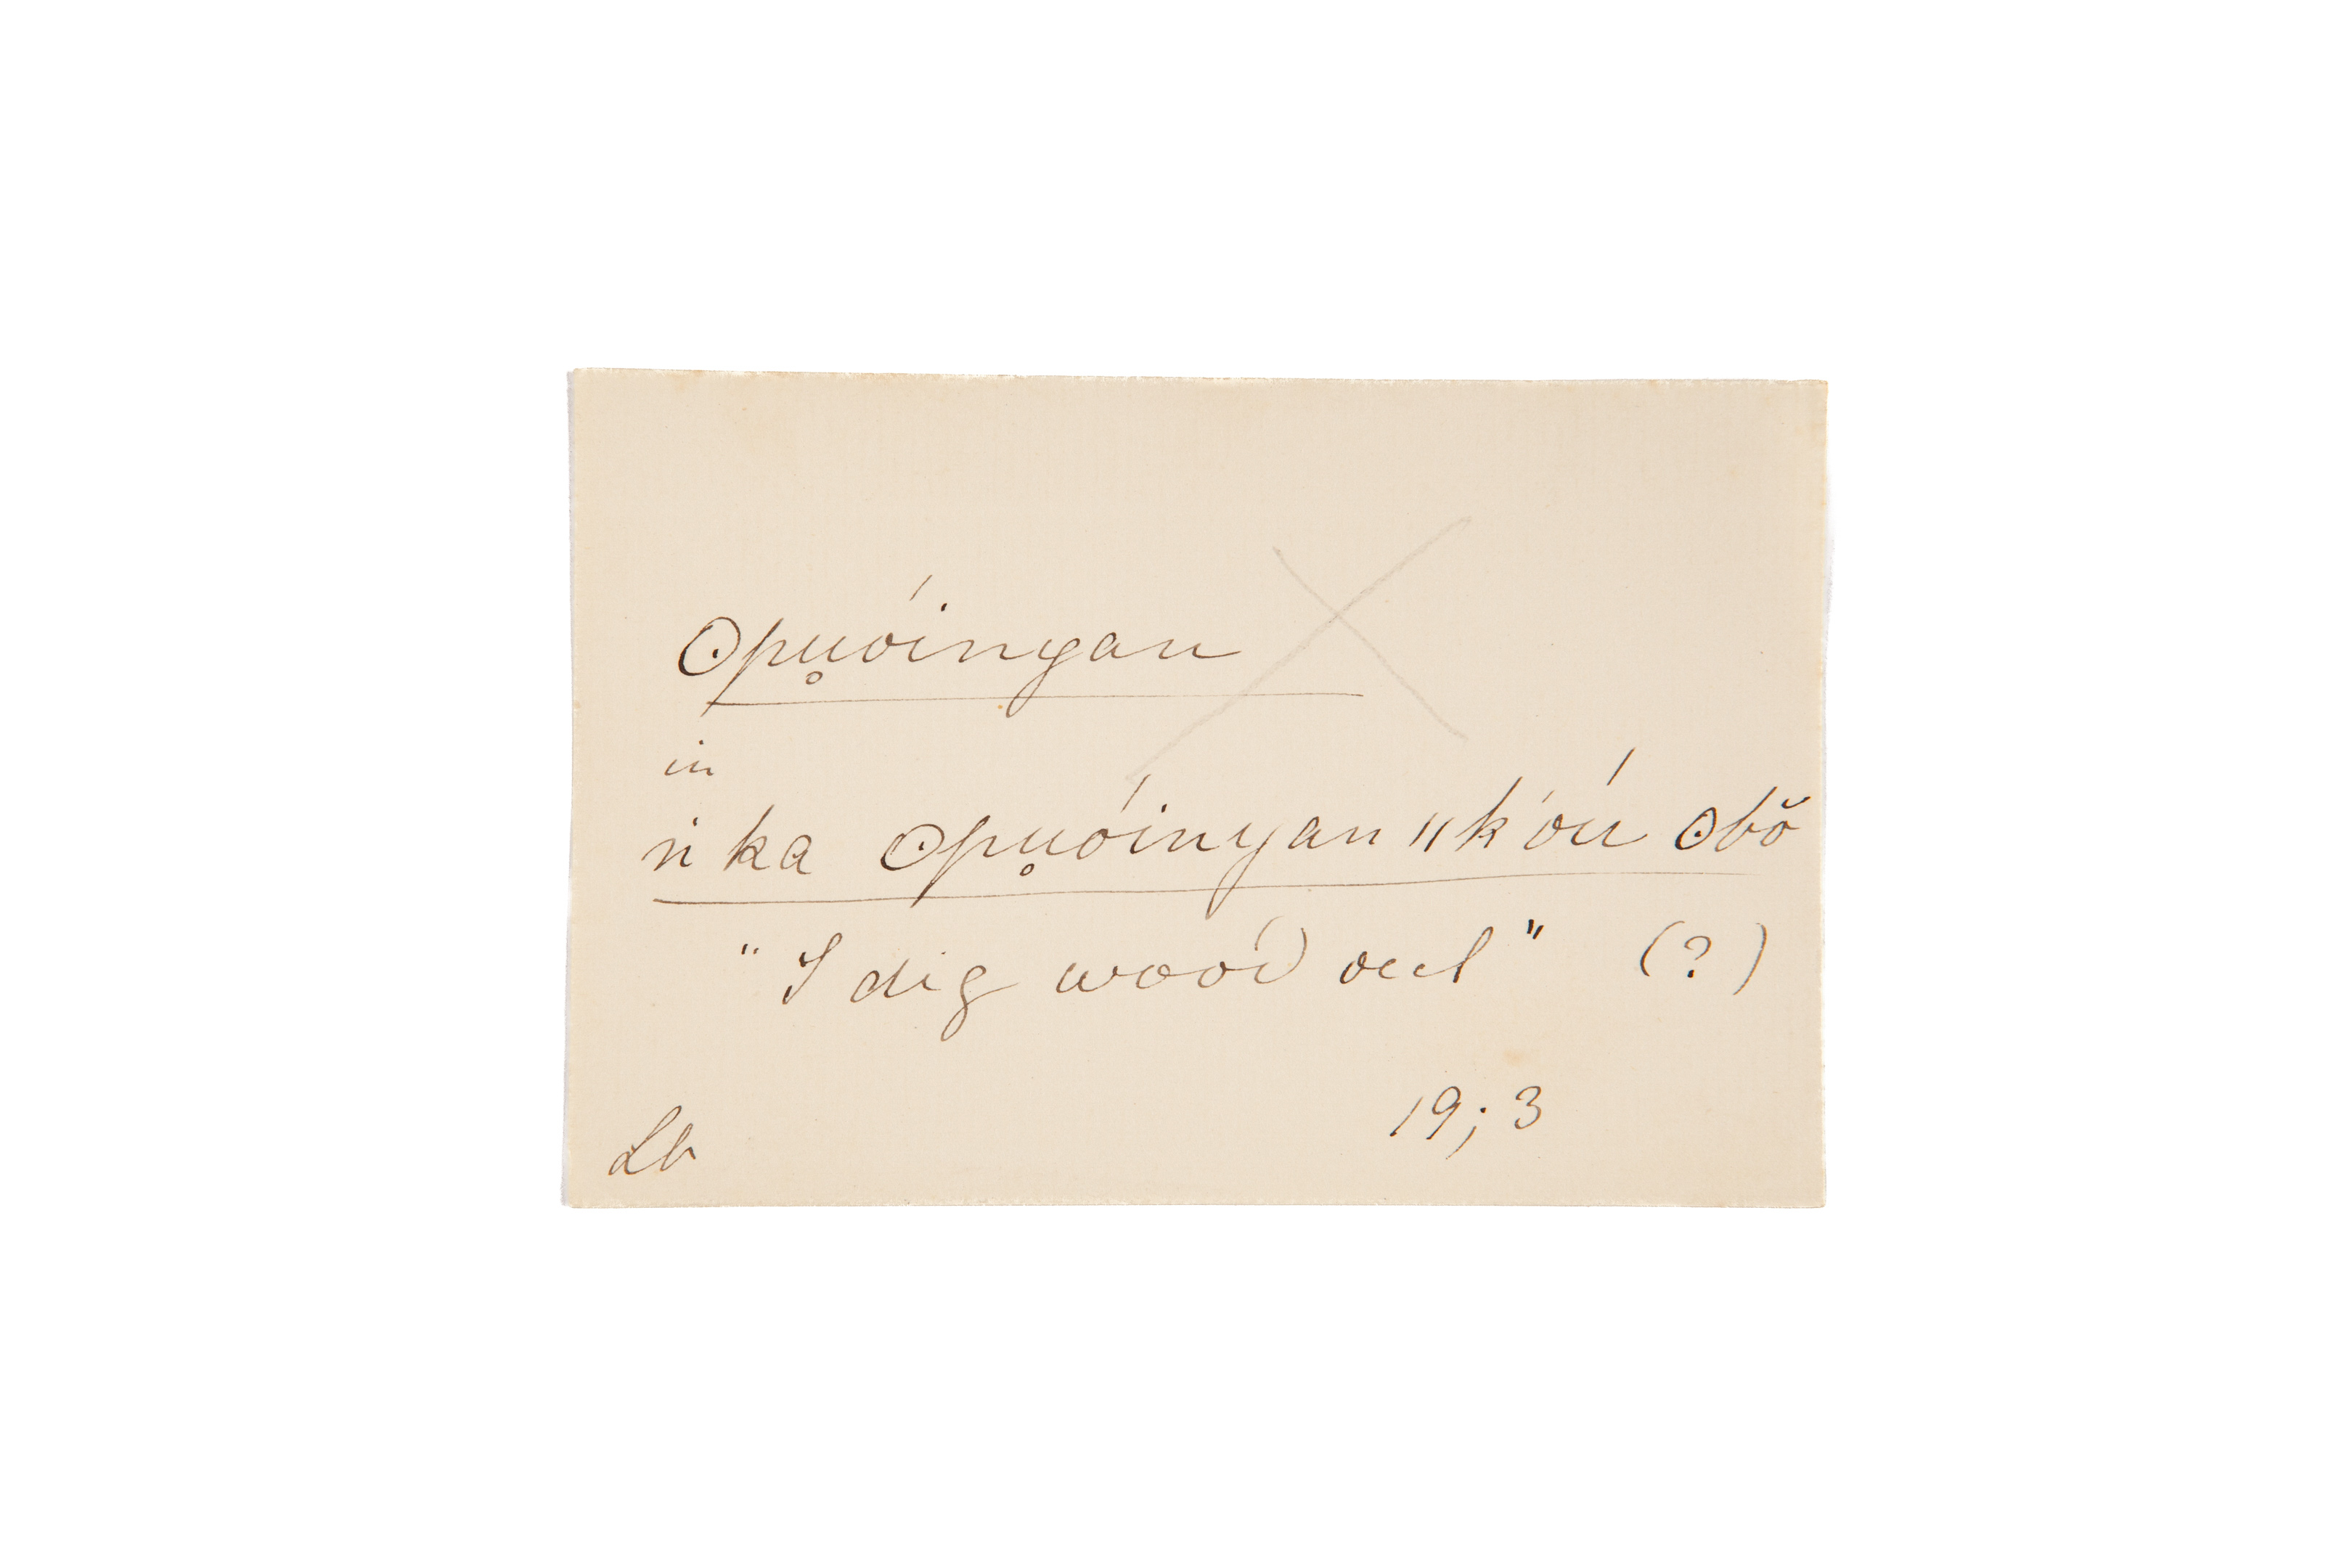 ʘpu̥óinyan
in
ṅ ka ʘpu̥óinyan ǁk'óú ʘbŏ
" I dig wood out " (?)
19; 3
Lb